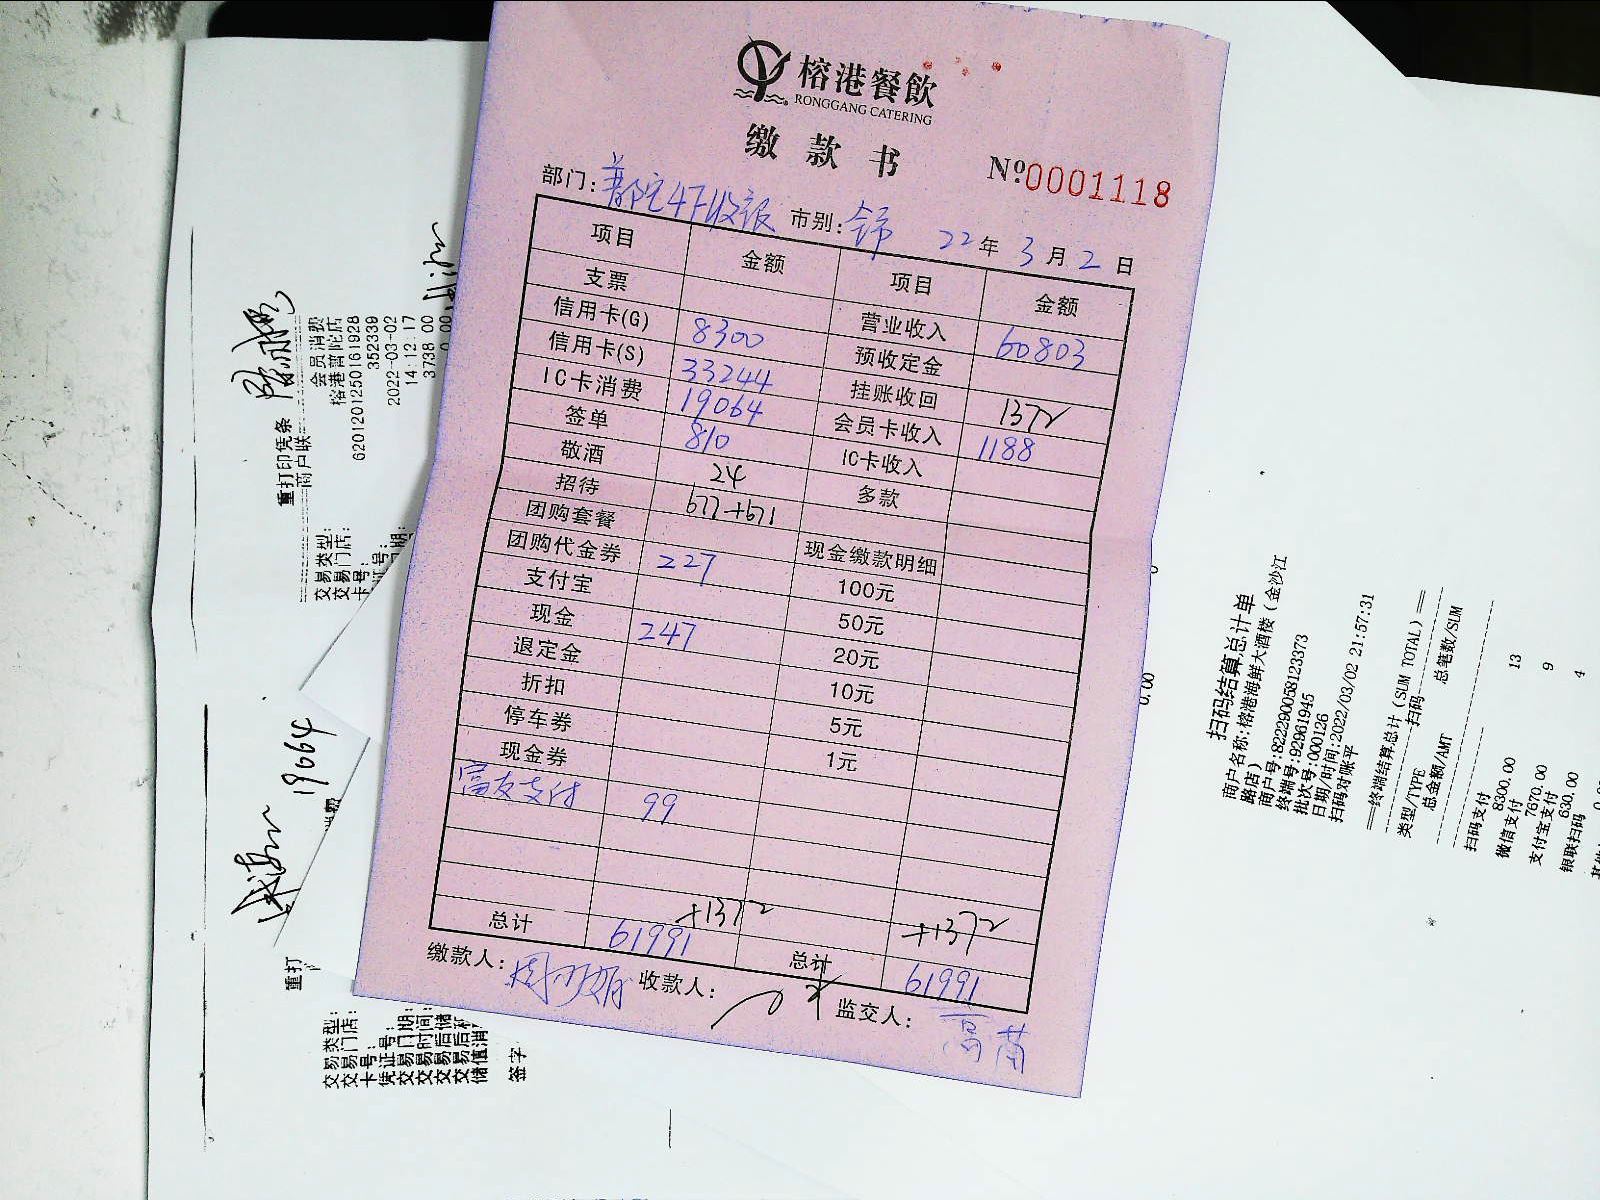 榕港餐飲
RONGGANG CATERING
缴款书
№0001118
部门: 普陀4F收银 市别: 全市 22年3月2日
项目 金额 项目 金额
支票 营业收入 60803
信用卡(G) 8300 预收定金
信用卡(S) 33244 挂账收回 1372
IC卡消费 19064 会员卡收入 1188
签单 810 IC卡收入
敬酒 24 多款
招待 677+671
团购套餐 现金缴款明细
团购代金券 227 100元
支付宝 50元
现金 247 20元
退定金 10元
折扣 5元
停车券 1元
现金券
富友支付 99
+1372 +1372
总计 61991 总计 61991
缴款人: 收款人: 监交人:
重打印凭条
商户联
交易类型: 会员消费
交易门店: 榕港普陀店
卡号: 6201201250161928
352339
2022-03-02
14:12:17
3738.00
0.00
19064
重打
交易类型:
交易门店:
卡号:
凭证号:
交易日期:
交易时间:
交易后储
交易后积
储值消
签字
0.00
扫码结算总计单
商户名称:榕港海鲜大酒楼(金沙江
路店)
商户号:822290058123373
终端号:92961945
批次号:000126
日期/时间:2022/03/02 21:57:31
扫码对账平
==终端结算总计(SUM TOTAL)==
扫码
类型/TYPE 总笔数/SUM
总金额/AMT
扫码支付 13
8300.00
微信支付 9
7670.00
支付宝支付 4
630.00
银联扫码